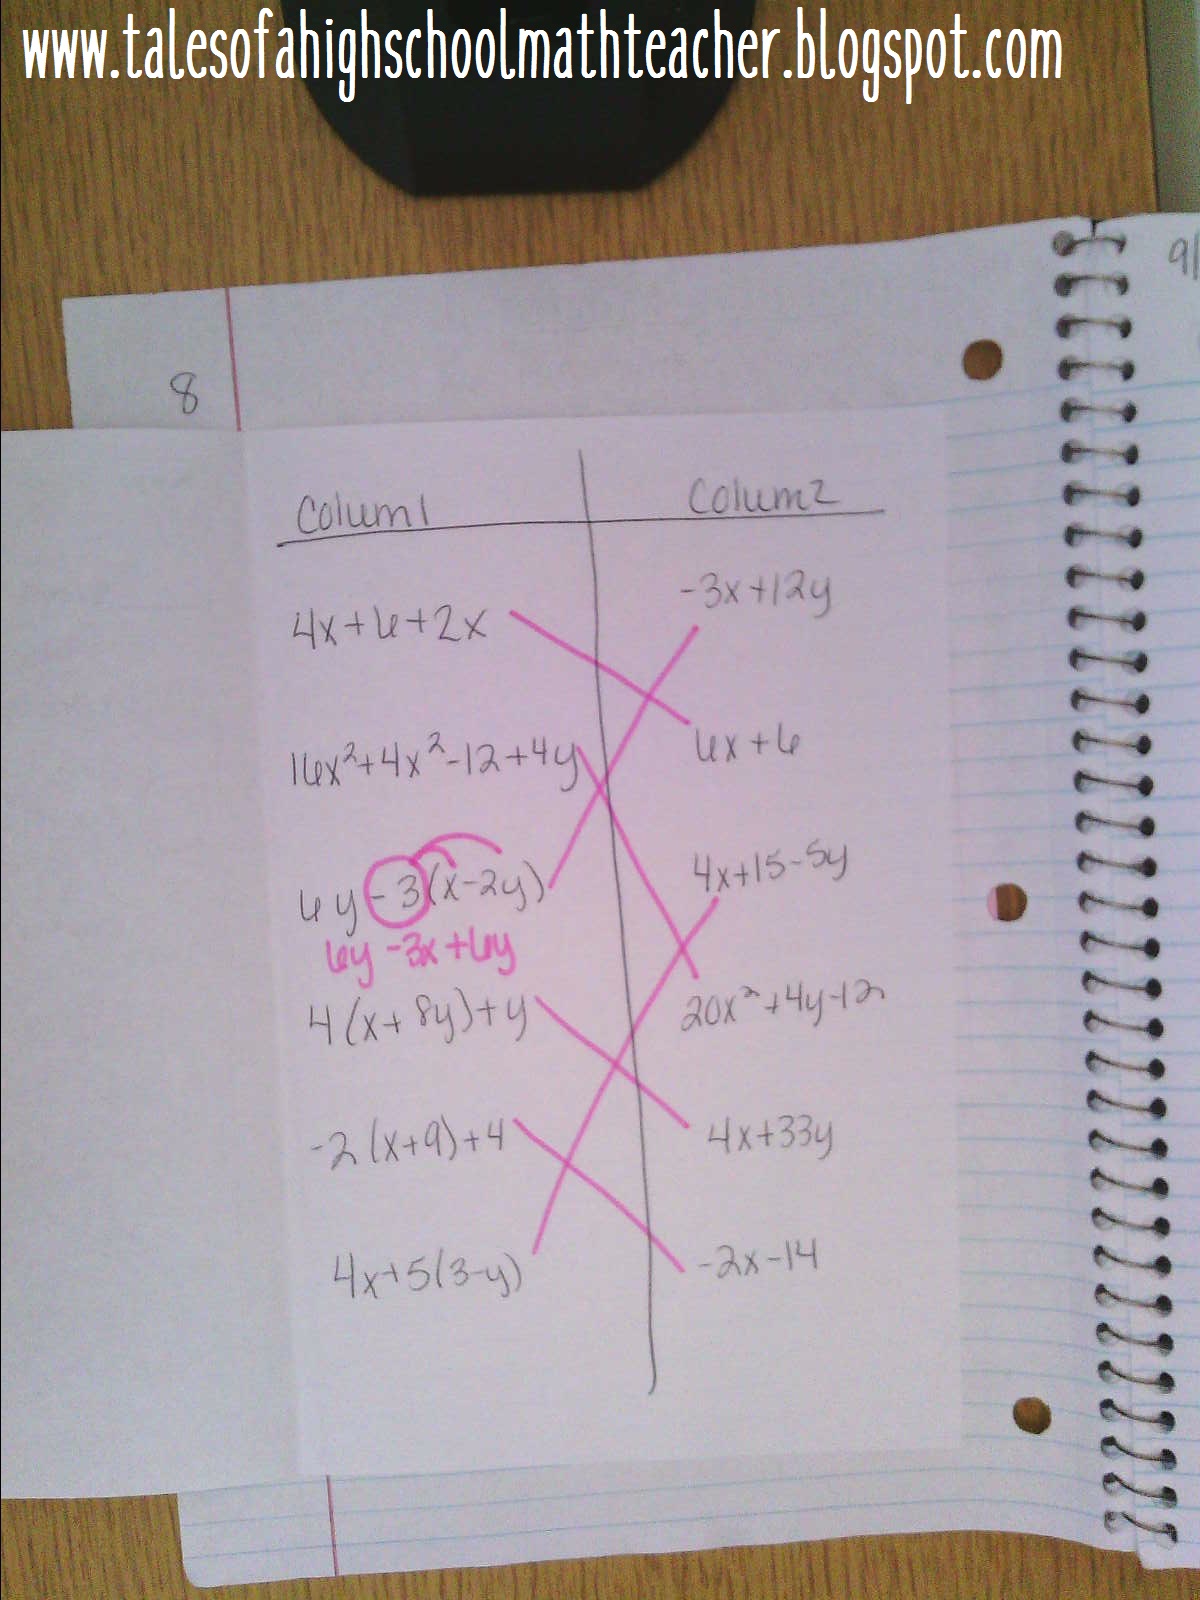 www.talesofahighschoolmathteacher.blogspot.com
8
Colum1
Colum2
4x+6+2x
-3x+12y
16x²+4x²-12+4y
6x+6
6y-3(x-2y)
6y-3x+6y
4x+15-5y
4(x+8y)+y
20x²+4y-12
-2(x+9)+4
4x+33y
4x+5(3-y)
-2x-14